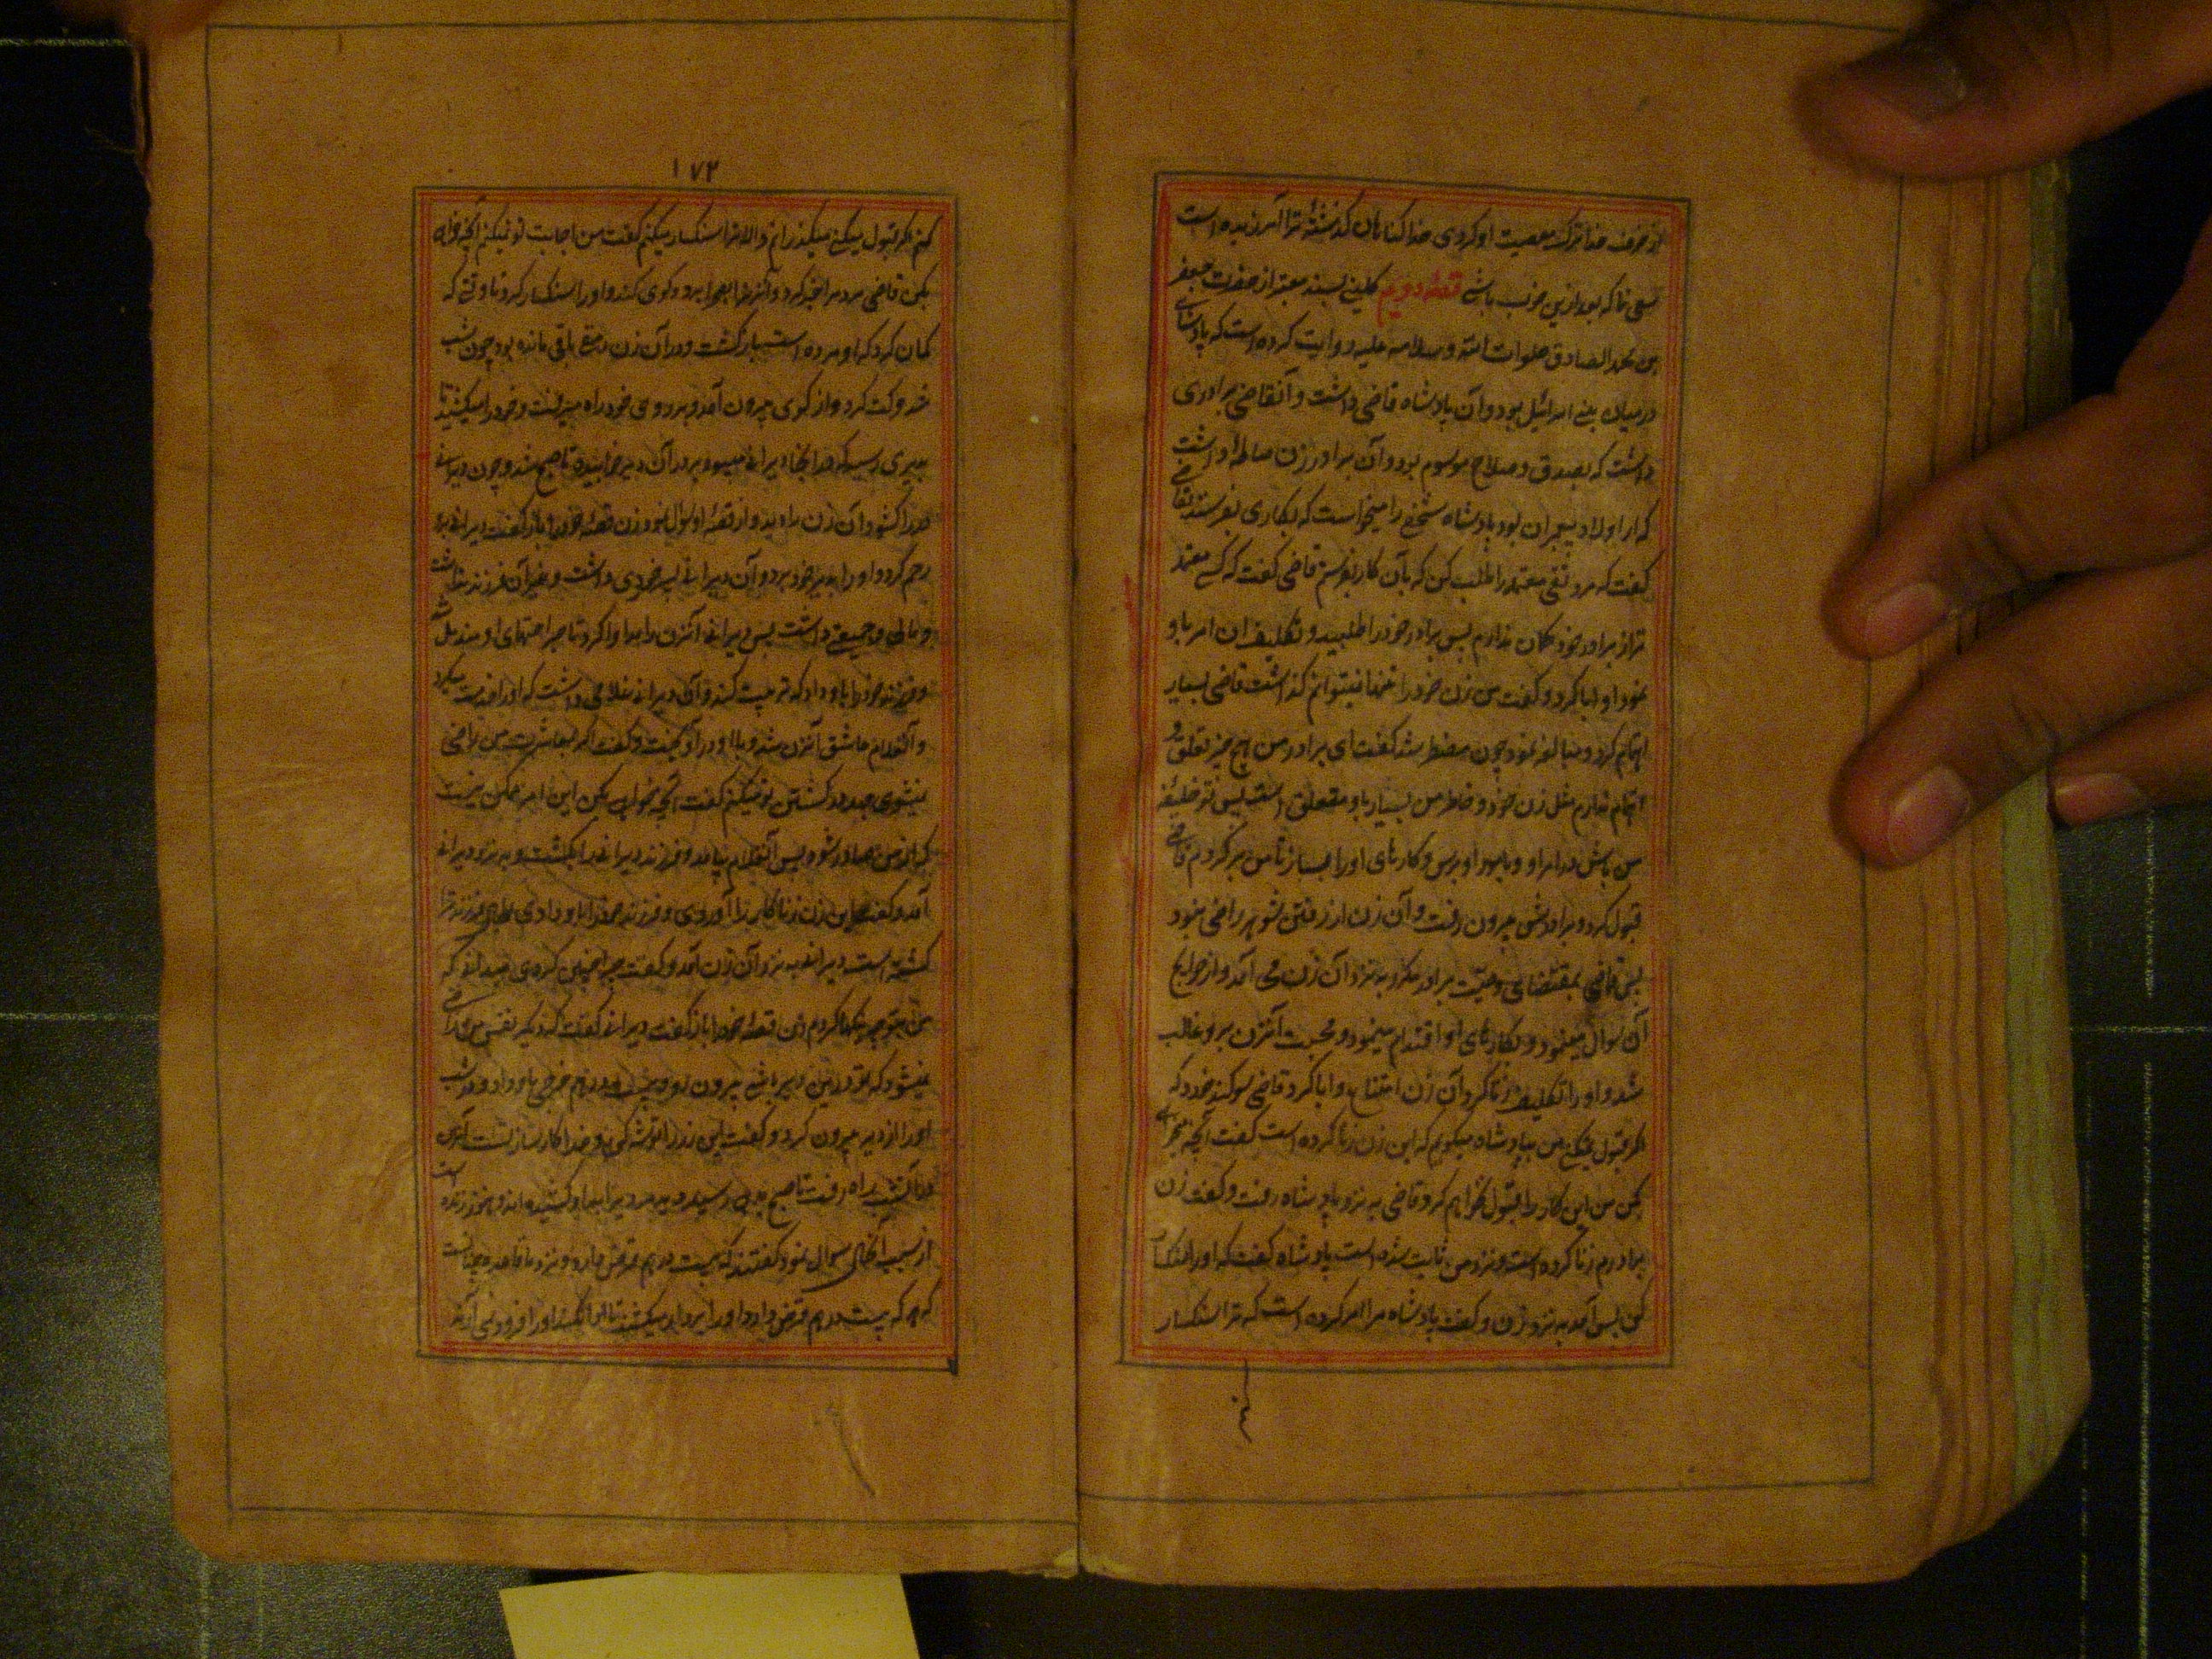 از خوف خدا ترک معصیت او کردی خدا گناهان گذشتهٔ ترا آمرزیده است
سعی نما که بعد ازین خوب باشی قصهٔ دویم کلینی بسند معتبر از حضرت جعفر
بن محمد الصادق صلوات الله و سلامه علیه روایت کرده است که پادشاهی
در میان بنی اسرائیل بود و آن پادشاه قاضی داشت و آنقاضی برادری
داشت که بصدق و صلاح موسوم بود و آن برادر زن صالحهٔ داشت
که از اولاد پیغمبران بود پادشاه شخصی را میخواست که بکاری بفرستد بقاضی
گفت که مرد ثقی معتمد را طلب کن که بآن کار بفرستم قاضی گفت که کسی معتمد
تر از برادر خود گمان ندارم پس برادر خود را طلبید و تکلیف آن امر باو
نمود او ابا کرد و گفت من زن خود را تنها نمیتوانم گذاشت قاضی بسیار
اهتمام کرد و مبالغه نمود چون مضطر شد گفت ای برادر من هیچ چیز تعلق و
اهتمام ندارم مثل زن خود و خاطر من بسیار باو متعلق است پس تو خلیفهٔ
من باش در امر او و بامور او برس و کارهای او را بساز تا من برگردم قاضی
قبول کرد و برادرش بیرون رفت و آن زن از رفتن شوهر راضی نبود
پس قاضی بمقتضای وصیت برادر مکرر به نزد آن زن می آمد و از حوایج
آن سوال مینمود و بکارهای او اقدام مینمود و محبت آنزن برو غالب
شد و او را تکلیف زنا کرد آن زن امتناع و ابا کرد قاضی سوگند خورد که
اگر قبول نمیکنی من بپادشاه میگویم که این زن زنا کرده است گفت آنچه میخواهی
بکن من این کار را قبول نخواهم کرد قاضی به نزد پادشاه رفت و گفت زن
برادرم زنا کرده است و نزد من ثابت شده است پادشاه گفت که او را سنگسار
کن پس آمد به نزد زن و گفت پادشاه مرا امر کرده است که ترا سنگسار
۱۷۲
کنم اگر قبول میکنی میگذرانم والا ترا سنگسار میکنم گفت من اجابت تو نمیکنم آنچه خواهی
بکن قاضی مردم را خبر کرد و آنزن را بصحرا برد و گوی کند و او را سنگسار کرد تا وقتی که
گمان کرد که او مرده است باز گشت و در آن زن رمقی باقی مانده بود چون شب
شد حرکت کرد و از گوی بیرون آمد و بر روی خود راه میرفت و خود را میکشید تا
بدیری رسید که در آنجا دیرانی میبود بر در آن دیر خوابید تا صبح شد و چون دیرانی
در را گشود آن زن را دید و از قصهٔ او سوال نمود زن قصهٔ خود را باز گفت دیرانی برو
رحم کرد و او را به دیر خود برد و آن دیرانی پسر خوردی داشت و بغیر آن فرزند نداشت
و مالی و جمعیتی داشت پس دیرانی آنزن را مداوا کرد تا جراحتهای او مندمل شد
و فرزند خود را باو داد که تربیت کند و آن دیرانی غلامی داشت که او را خدمت میکرد
و آنغلام عاشق آنزن شد و با او در آویخت و گفت اگر بمعاشرت من راضی
نمیشوی جهد در کشتن تو میکنم گفت آنچه خواهی بکن این امر ممکن نیست
که از من صادر شود پس آنغلام بیامد و فرزند دیرانی را بکشت و به نزد دیرانی
آمد و گفت این زن زنا کار را آوردی و فرزند خود را باو دادی فرزند ترا
کشته است دیرانی به نزد آن زن آمد و گفت چرا چنین کردی میدانی که
من بتو چه نیکیها کردم زن قصهٔ خود را باز گفت دیرانی گفت که دیگر نفس من راضی
نمیشود که تو درین دیر باشی بیرون رو و بیست درهم خرجی باو داد و در شب
او را از دیر بیرون کرد و گفت این زر را توشه کن و خدا کار ساز تست آنزن
در آنشب راه رفت تا صبح بدهی رسید دید مردی را بدار کشیده اند و هنوز زنده است
از سبب آنحال سوال نمود گفتند که بیست درهم قرض دارد و نزد ما قاعده چنانست
که هر که بیست درهم قرض دارد او را بردار میکشند تا ادا نکند او را فرود نمی آرند